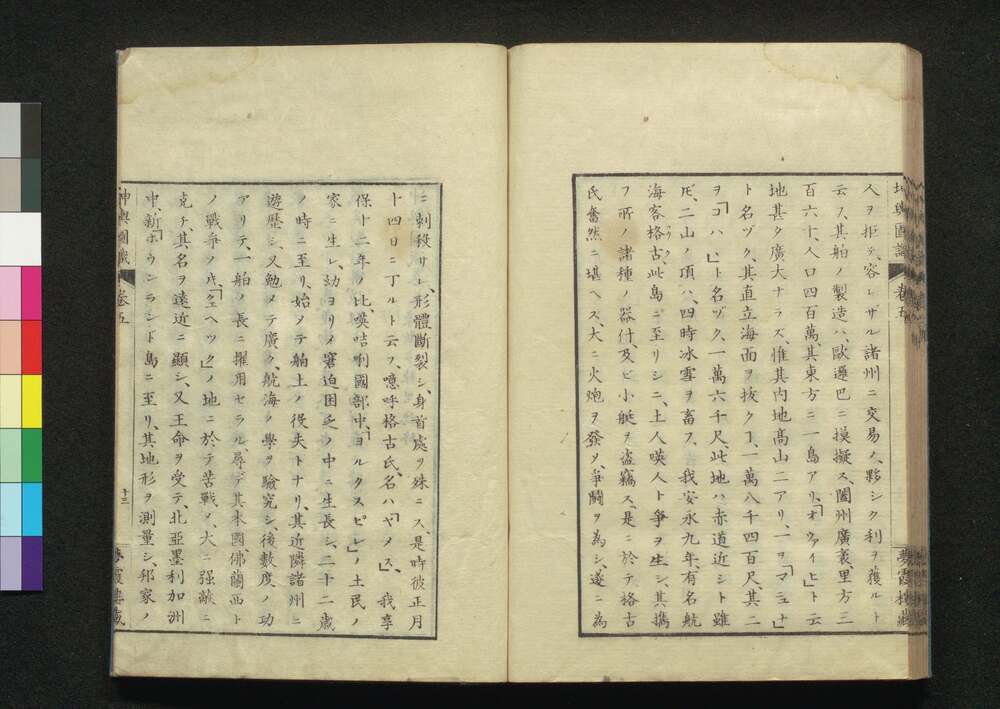 坤輿圖識
卷五
夢霞樓藏
人ヲ拒テ、容レザル諸州ニ交易ノ、夥シク利ヲ獲ルト
云フ、其舶ノ製造ハ、歐邏巴ニ摸擬ス、闔州廣袤、里方三
百六十、人口四百萬其東方ニ一島アリ、「オウァイヒ」ト云
地甚タ廣大ナラズ、惟其内地高山二アリ、一ヲ「マヨナ」
ト名ヅク、其直立海面ヲ拔クヿ、一萬八千四百尺、其二
ヲ「コハ」ト名ヅク、一萬六千尺、此地ハ赤道近シト雖
𪜈、二山ノ項ハ、四時冰雪ヲ畜フ、我安永九年、有名航
海客格古、此島ニ至リシニ、土人暎人ト爭ヲ生シ、其攜
フ所ノ諸種ノ器什、及ビ小艇ヲ盜竊ス、是ニ於テ格古
氏奮然ニ堪ヘス、大ニ火炮ヲ發メ、爭鬪ヲ為シ、遂ニ為
ニ刺殺サレ、形體斷裂シ、身首處ヲ殊ニス、是時彼正月
十四日ニ丁ルト云フ、噫呼格古氏、名ハ「ヤメス」、我享
保十二年ノ比、暎咭唎國部中、「ヨルクスピレ」ノ土民ノ
家ニ生レ、幼ヨリメ窘迫困乏ノ中ニ生長シ、二十二歳
ノ時ニ至リ、始メテ舶土ノ役夫トナリ、其近隣諸州ニ
遊歴シ、又勉メテ廣ク、航海ノ學ヲ驗究シ、後數度ノ功
アリテ、一舶ノ長ニ擢用セラル、尋デ其本國、佛蘭西ト
ノ戰爭ノ𪜈、「クエヘック」ノ地ニ於テ苦戰メ、大ニ强敵ニ
克チ、其名ヲ遠近ニ顯シ、又王命ヲ受テ、北亞墨利加洲
中、「新ホウンランド島ニ至リ、其地形ヲ測量シ、邦家ノ
坤輿圖識
卷五
十三
夢霞樓藏